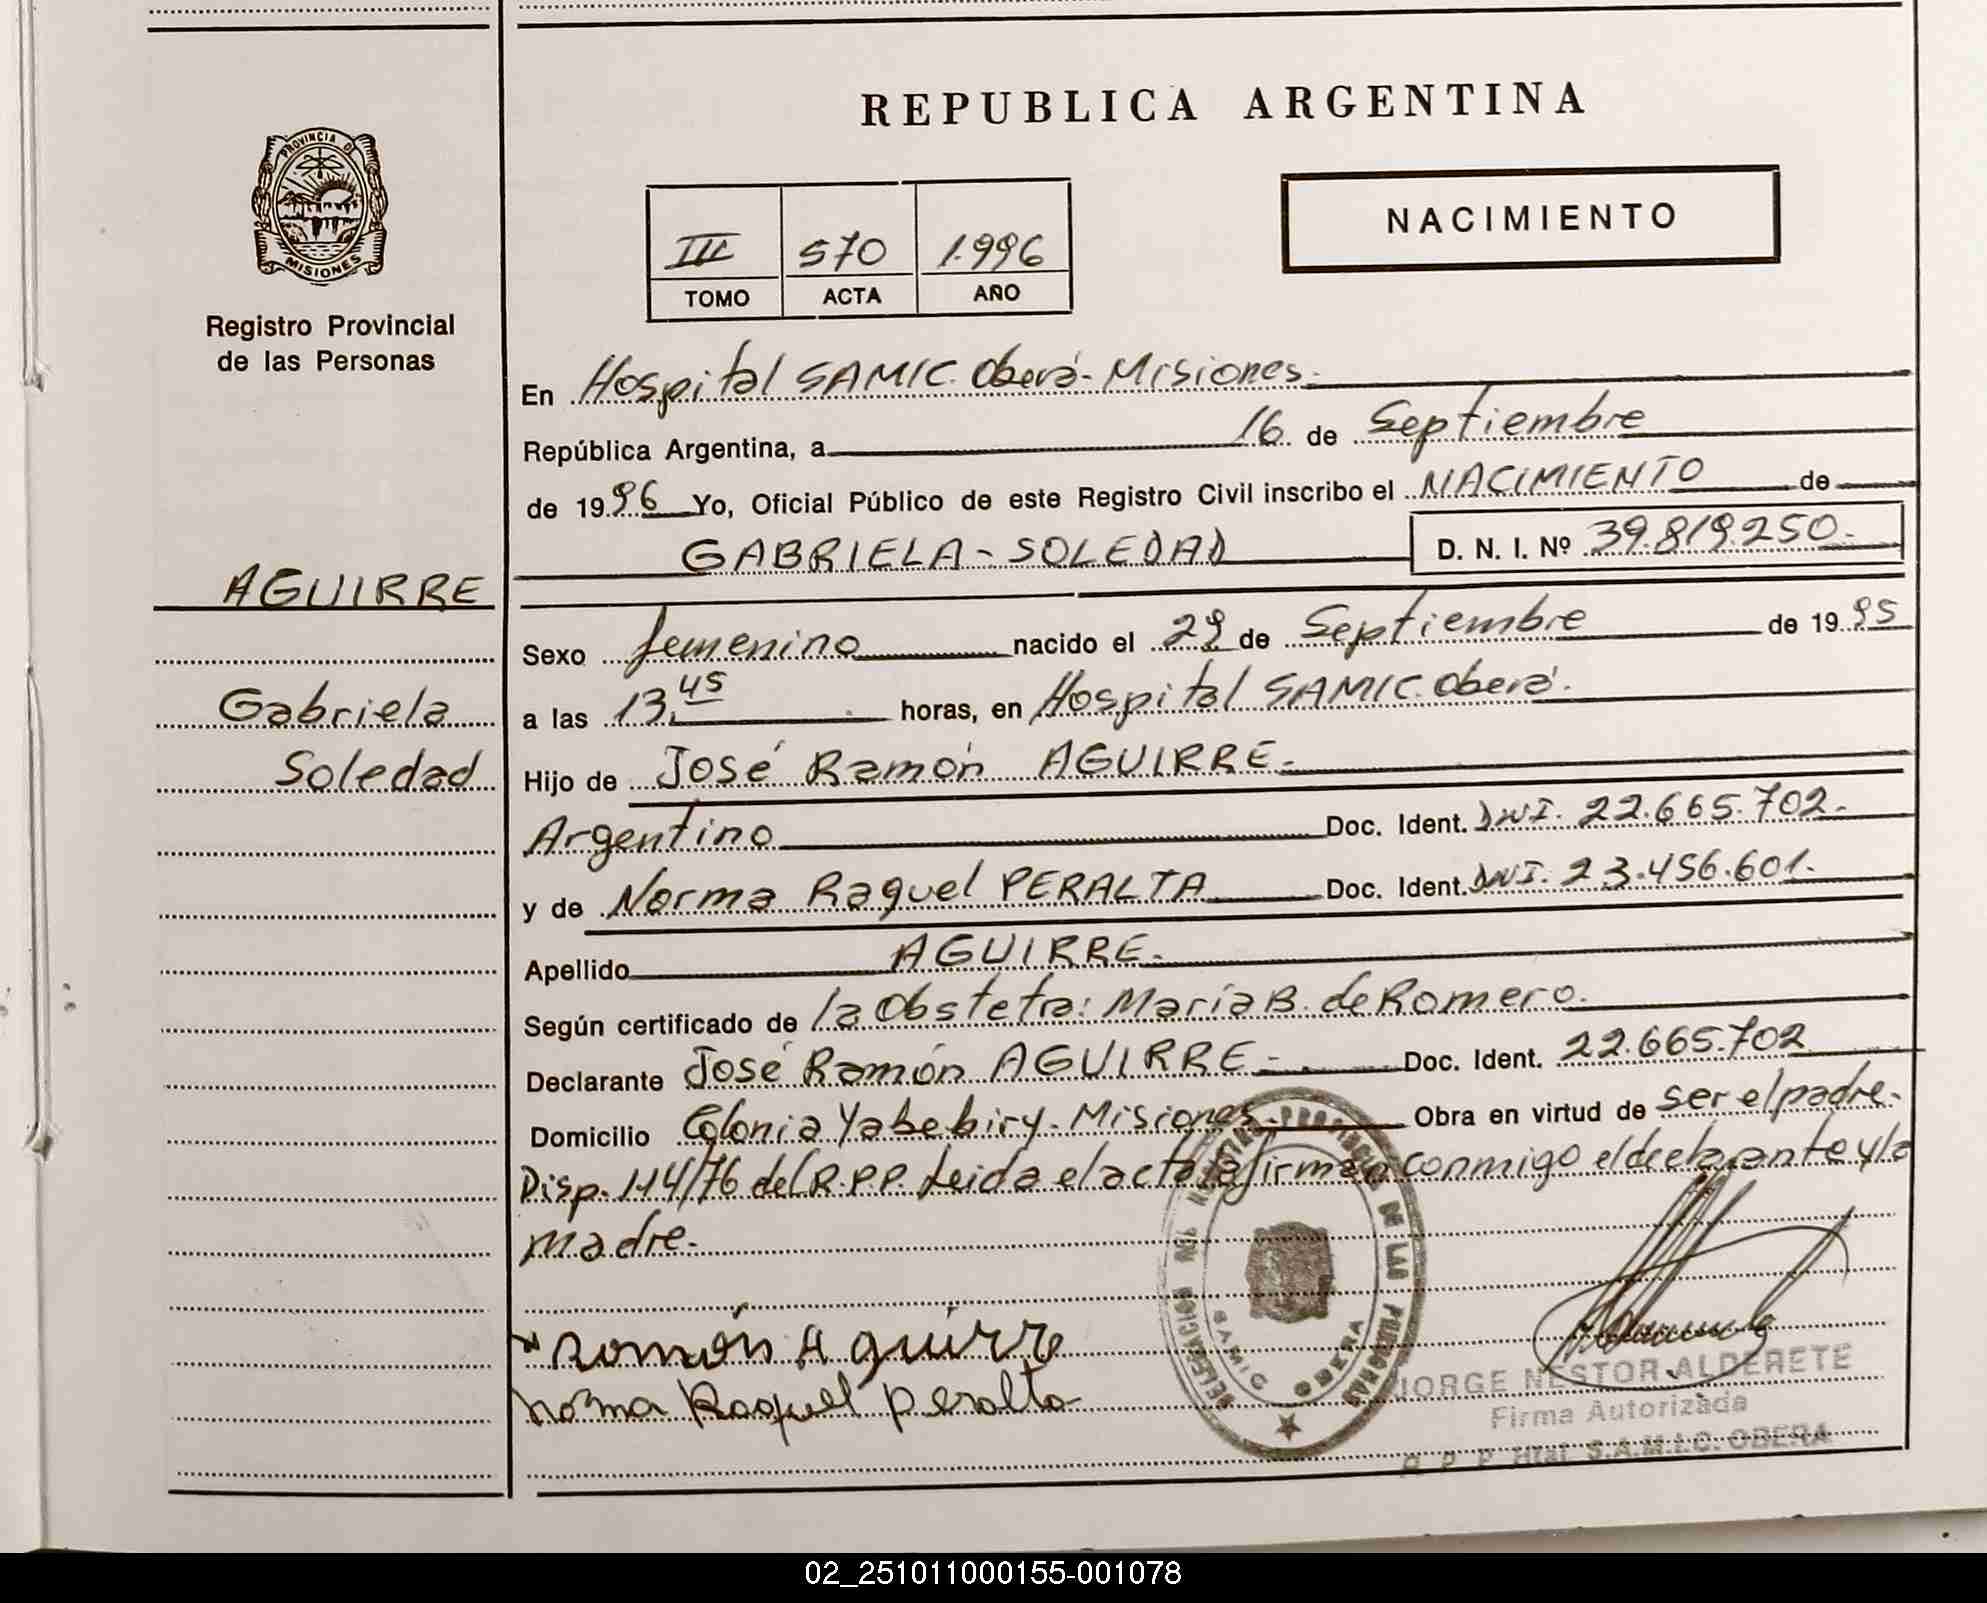 REPUBLICA ARGENTINA
PROVINCIA DE
MISIONES
Registro Provincial
de las Personas
NACIMIENTO
III 570 1.996
TOMO ACTA AÑO
En Hospital SAMIC. Oberá- Misiones.
República Argentina, a 16 de Septiembre
de 1996 Yo, Oficial Público de este Registro Civil inscribo el NACIMIENTO de
GABRIELA - SOLEDAD D. N. I. Nº 39.819.250.-
AGUIRRE
Gabriela
Soledad
Sexo femenino nacido el 29 de Septiembre de 1995
a las 13,45 horas, en Hospital SAMIC. Oberá.
Hijo de José Ramón AGUIRRE.-
Argentino Doc. Ident. DNI. 22.665.702.-
y de Norma Raquel PERALTA Doc. Ident. DNI. 23.456.601.-
Apellido AGUIRRE.-
Según certificado de la Obstetra: María B. de Romero.
Declarante José Ramón AGUIRRE.- Doc. Ident. 22.665.702
Domicilio Colonia Yabebiry- Misiones.- Obra en virtud de ser el padre.-
Disp. 114/76 del R.P.P. Leida el acta la firman conmigo el declarante y la
madre.-
Ramón Aguirre
Norma Raquel peralta
DELEGACION REGISTRO PROVINCIAL DE LAS PERSONAS
SAMIC OBERA
JORGE NESTOR ALDERETE
Firma Autorizada
R P P Htal S.A.M.I.C. OBERA
02_251011000155-001078